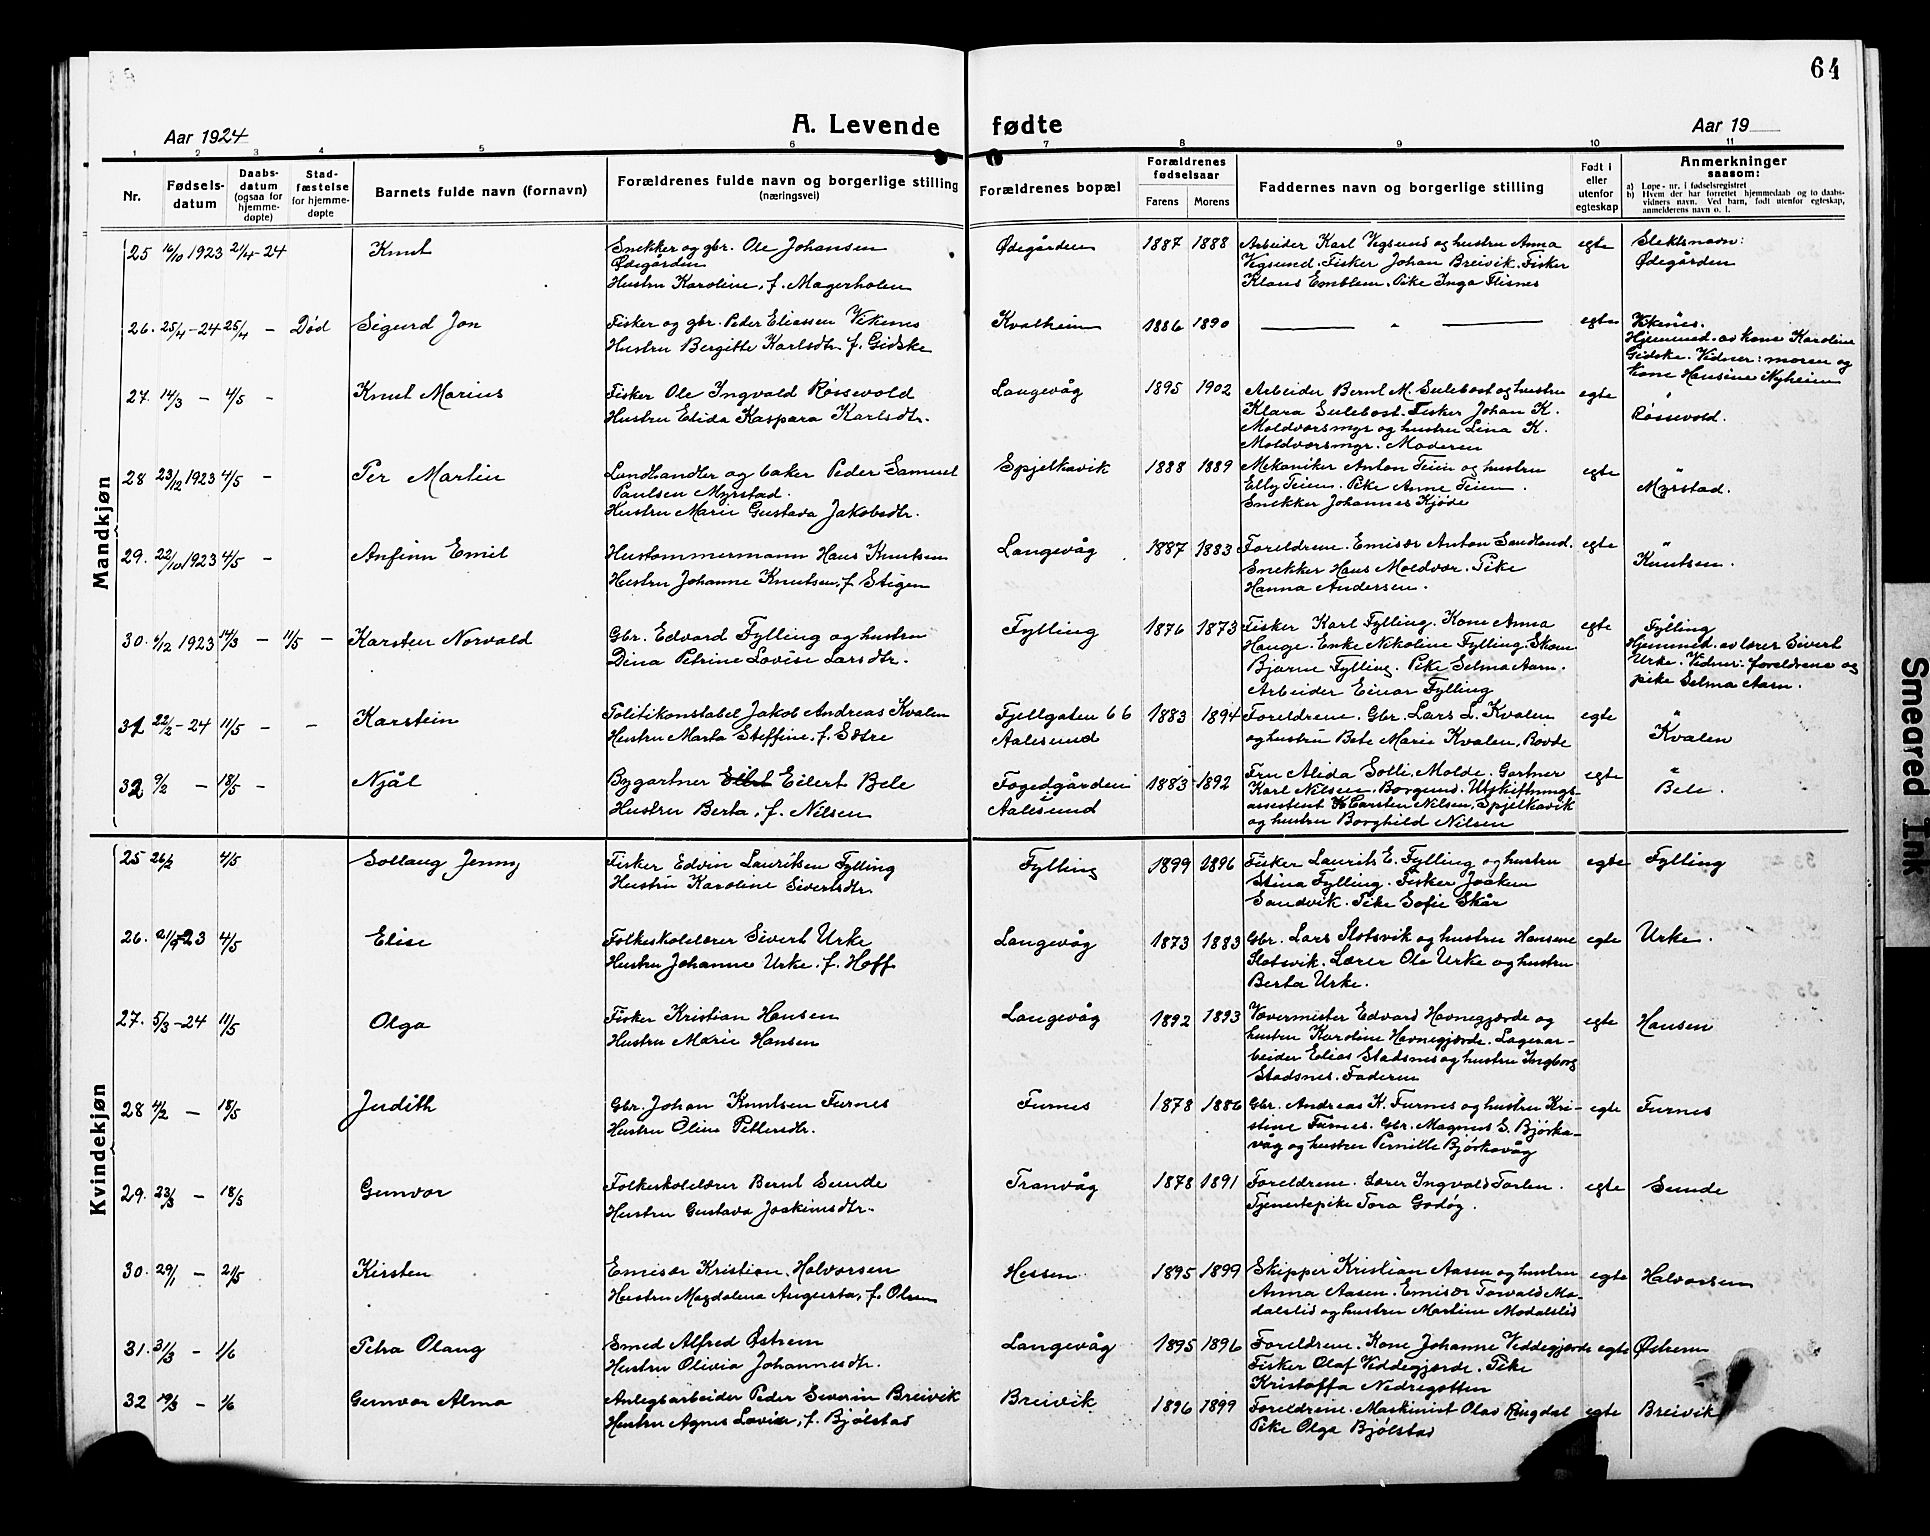 64
Aar 1924
A. Levende fødte
Aar 19
1 2 3 4 5 6 7 8 9 10 11
Nr.
Fødsels-
datum
Daabs-
datum
(ogsaa for
hjemme-
døpte)
Stad-
fæstelse
for hjemme-
døpte
Barnets fulde navn (fornavn)
Forældrenes fulde navn og borgerlige stilling
(næringsvei)
Forældrenes bopæl
Forældrenes
fødselsaar
Farens Morens
Faddernes navn og borgerlige stilling
Født i
eller
utenfor
egteskap
Anmerkninger
saasom:
a) Løpe-nr. i fødselsregistret
b) Hvem der har forrettet hjemmedaab og to daabs-
vidners navn. Ved barn, født utenfor egteskap,
anmelderens navn o. l.
Mandkjøn
25 16/10 1923 21/4-24 Knut
Snekker og gbr. Ole Johansen
Ødegården
Hustru Karoline, f. Magerholm
Ødegården 1887 1888
Arbeider Karl Vegsund og hustru Anna
Vegsund. Fisker Johan Breivik. Fisker
Klaus Emblem. Pike Inga Flisnes
egte
Slektsnavn:
Ødegården
26. 25/4-24 25/4 - Død Sigurd Jon
Fisker og gbr. Peder Eliassen Vikenes
Hustru Bergitte Karlsdtr. f. Gidske
Kvalheim 1886 1890
— " —
egte
Vikenes.
Hjemmed. av kone Karoline
Gidske. Vidner: moren og
kone Hansine Nyheim
27. 14/3 - 4/5 - Knut Marius
Fisker Ole Ingvald Røssevold
Hustru Elida Kaspara Karlsdtr.
Langevåg 1895 1902
Arbeider Bernt M. Sulebost og hustru
Klara Sulebost. Fisker Johan K.
Moldværsmyr og hustru Lina K.
Moldværsmyr. Moderen
egte
"
Røssevold.
28 23/12 1923 4/5 - Per Martin
Landhandler og baker Peder Samuel
Paulsen Myrstad.
Hustru Marie Gustava Jakobsdtr.
Spjelkavik 1888 1889
Mekaniker Anton Teien og hustru
Elly Teien. Pike Anne Teien.
Snekker Johannes Kjøde
egte
"
Myrstad.
29. 22/10 1923 4/5 - Anfinn Emil
Hustømmermann Hans Knutsen
Hustru Johanne Knutsen, f. Stigen
Langevåg 1887 1883
Foreldrene. Emisær Anton Sandland.
Snekker Hans Moldvær. Pike
Hanna Andersen.
egte
"
Knutsen.
30. 6/12 1923 14/3 - 11/5 - Karsten Norvald
Gbr. Edvard Fylling og hustru
Dina Petrine Lovise Larsdtr.
Fylling 1876 1873
Fisker Karl Fylling. Kone Anna
Hauge. Enke Nikoline Fylling. Skom.
Bjarne Fylling. Pike Selma Aarn.
Arbeider Einar Fylling
egte
Fylling
Hjemmed. av lærer Sivert
Urke. Vidner: foreldrene og
pike Selma Aarn.
31 22/2-24 11/5 - - Karstein
Politikonstabel Jakob Andreas Kvalen
Hustru Marta Steffine, f. Sætre
Fjellgaten 66
Aalesund
1883 1894
Foreldrene. Gbr. Lars L. Kvalen
og hustru Bete Marie Kvalen, Rovde
egte
"
Kvalen
32 9/2 - 18/5 - Njål
Bygartner Eilert Bele
Hustru Berta, f. Nilsen
Fogedgården
Aalesund
1883 1892
Fru Alida Solli, Molde. Gartner
Karl Nilsen, Borgund. Utskiftnings-
assistent Karsten Nilsen, Spjelkavik
og hustru Borghild Nilsen
egte
"
Bele.
Kvindekjøn
25 26/2 4/5 Sollaug Jenny
Fisker Edvin Lauritsen Fylling
Hustru Karoline Sivertsdtr.
Fylling 1899 1896
Fisker Laurits E. Fylling og hustru
Stina Fylling. Fisker Joakim
Sandvik. Pike Sofie Skår
egte Fylling
26. 4/5 Elise
Folkeskolelærer Sivert Urke
Hustru Johanne Urke. f. Hoff
Langevåg 1873 1883
Gbr. Lars Slotsvik og hustru Hansine
Slotsvik. Lærer Ole Urke og hustru
Berta Urke.
egte Urke.
27. 5/3-24 11/5 Olga
Fisker Kristian Hansen
Hustru Marie Hansen
Langevåg 1892 1893
Vævermister Edvard Havnegjærde og
hustru Karoline Havnegjærde. Lagerar-
beider Elias Stadsnes og hustru Ingborg
Stadsnes. Faderen
egte Hansen
28 4/2 - 18/5 Judith
Gbr. Johan Knutsen Furnes
Hustru Oline Pettersdtr.
Furnes 1878 1886
Gbr. Andreas K. Furnes og hustru Kri-
stine Furnes. Gbr. Magnus S. Bjørka-
våg og hustru Pernille Bjørkavåg
egte Furnes
29. 23/3 - 18/5 Gunvor
Folkeskolelærer Bernt Sunde
Hustru Gustava Joakimsdtr.
Tranvåg 1878 1891
Foreldrene. Lærer Ingvald Torlen.
Tjenestepike Tora Godøy.
egte Sunde
30. 29/1 - 21/5 Kirsten
Emisær Kristian Halvorsen
Hustru Magdalena Augusta, f. Olsen
Hessen 1895 1899
Skipper Kristian Aasen og hustru
Anna Aasen. Emisær Torvald Mo-
dalslid og hustru Martine Modalslid
egte Halvorsen
31. 31/3 - 1/6 Petra Olaug
Smed Alfred Østrem
Hustru Olivia Johannesdtr.
Langevåg 1895 1896
Foreldrene. Kone Johanne Viddegjærde
Fisker Olaf Viddegjærde. Pike
Kristoffa Nedregotten
egte Østrem
32 19/3 - 1/6 Gunvor Alma
Anlegsarbeider Peder Severin Breivik
Hustru Agnes Lovise, f. Bjølstad
Breivik 1896 1899
Foreldrene. Maskinist Olav Ringdal
Pike Olga Bjølstad
egte Breivik
Smeared Ink